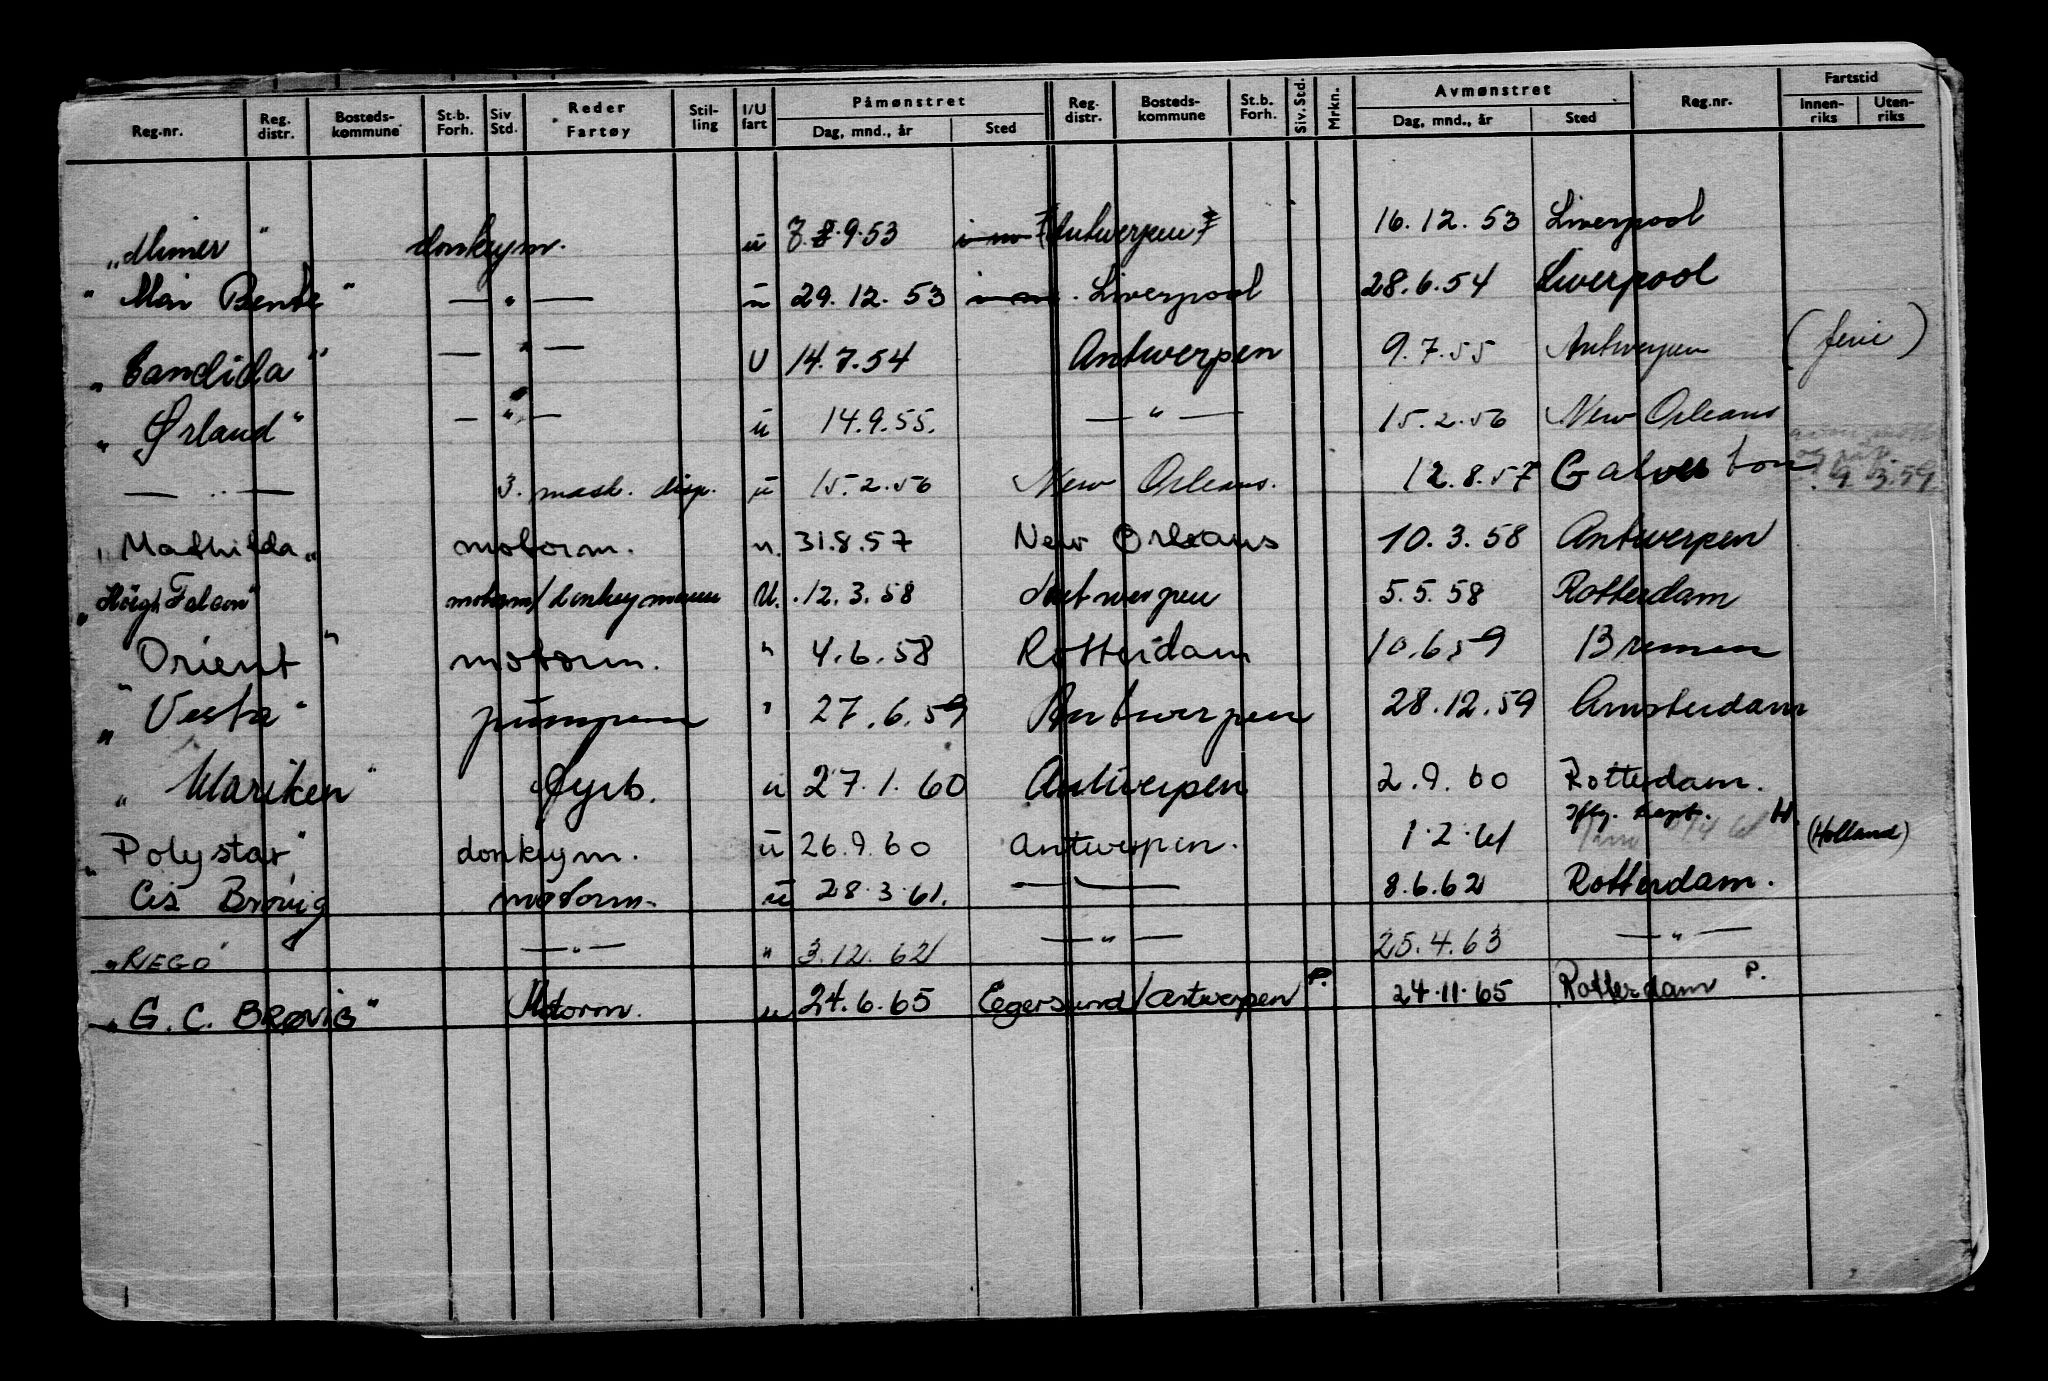 Reg.nr. Reg. distr. Bosteds-kommune St.b. Forh. Siv Std. Reder Fartøy Stil-ling I/U fart Påmønstret Dag, mnd., år Sted Reg-distr. Bosteds-kommune St.b. Forh. Siv.Std. Mrkn. Avmønstret Dag, mnd., år Sted Reg.nr. Fartstid Innen-riks Uten-riks
„Mimer" donkeym. u 9.53 Antwerpen 16.12.53 Liverpool
" Mai Bente " — " — u 29.12.53 Liverpool 28.6.54 Liverpool
„Candida" — " — U 14.7.54 Antwerpen 9.7.55 Antwerpen (ferie)
„Ørland" — " — u 14.9.55. — " — 15.2.56 New Orleans
— " — 3. mask. disp. u 15.2.56 New Orleans. 12.8.57 Galveston 9.3.59
„Mathilda„ motorm. u. 31.8.57 New Orleans 10.3.58 Antwerpen
„Höegh Falcon" motorm/donkeymann U. 12.3.58 Antwerpen 5.5.58 Rotterdam
Orient " motorm. " 4.6.58 Rotterdam 10.6.59 Bremen
„Vesta" pumpem " 27.6.59 Antwerpen 28.12.59 Amsterdam
„Mariken" Fyrb. u 27.1.60 Antwerpen 2.9.60 Rotterdam.
„Polystar" donkeym. u 26.9.60 Antwerpen. 1.2.61 H. (Holland)
Cis Brøvig motorm. u 28.3.61. — — 8.6.62 Rotterdam.
„REGO" — " — " 3.12.62 — " — 25.4.63 — " —
„G. C. BRØVIG" Motorm. u 24.6.65 Egersund/Antwerpen P. 24.11.65 Rotterdam P.